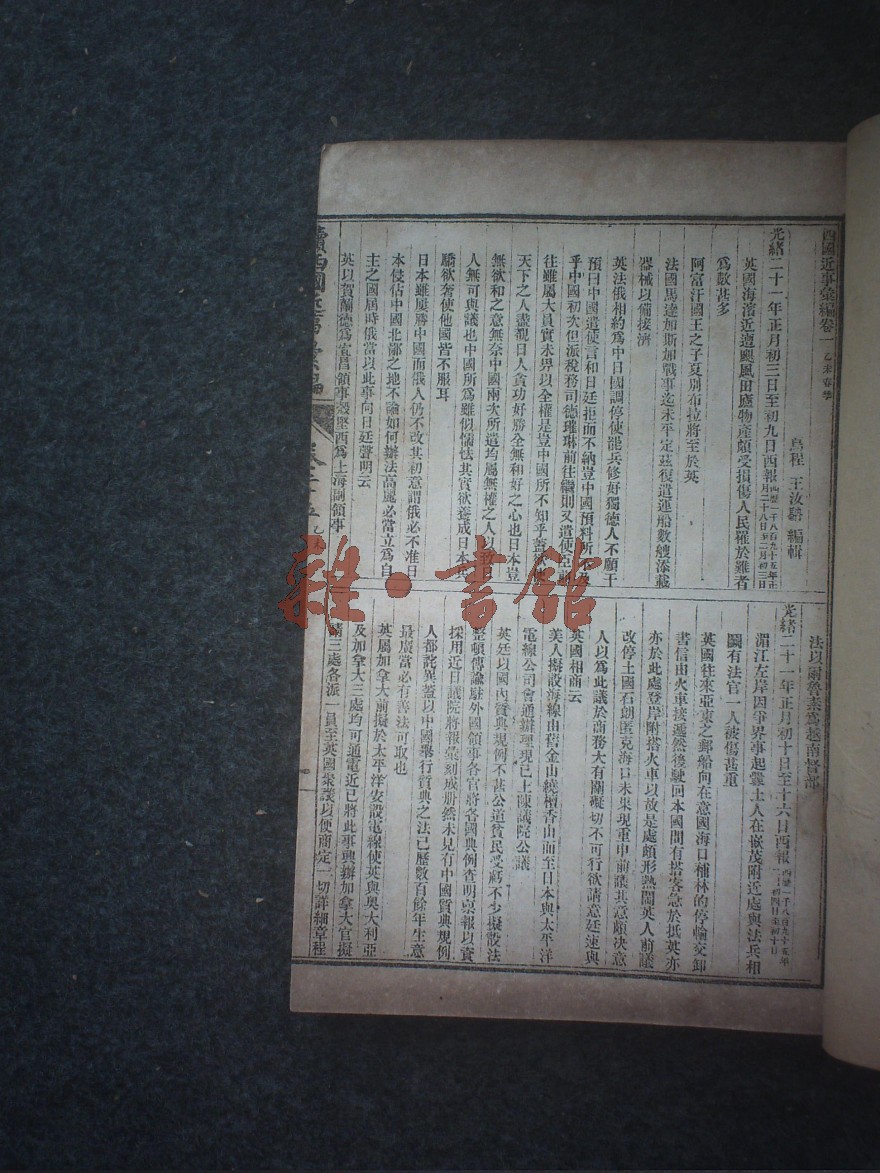 西國近事彙編卷一 乙未春季
烏程 王汝 編輯
光緒二十一年正月初三日至初九日西報 西歷一千八百九十五年正月二十八日至二月初三日
英國海濱近遭颶風田廬物產頗受損傷人民罹於難者
爲數甚多
阿富汗國王之子夏別布拉將至於英
法國馬達加斯加戰事迄未平定茲復遣運船數艘添載
器械以備接濟
英法俄相約爲中日國調停使罷兵修好獨德人不願干
預曰中國遣使言和日廷拒而不納豈中國預料所不及
乎中國初次但派稅務司德璀琳前往繼則又遣使
往雖屬大員實未畀以全權是豈中國所不知乎
天下之人盡觀日人貪功好勝全無和好之心也日本豈
無欲和之意無奈中國兩次所遣均屬無權之人以致日
人無可與議也中國所爲雖似懦怯其實欲養成日本
驕欲奢使他國皆不服耳
日本雖屢勝中國而俄人仍不改其初意謂俄必不准日
本侵佔中國北鄙之地不論如何辦法高麗必當立爲自
主之國屆時俄當以此事向日廷聲明云
英以賀蘭德爲宜昌領事穀堅西爲上海副領事
法以爾魯素爲越南督部
光緒二十一年正月初十日至十六日西報 西歷一千八百九十五年二月初四日至初十日
湄江左岸因爭界事起釁土人在嵌茂附近處與法兵相
鬬有法官一人被傷甚重
英國往來亞東之郵船向在意國海口補林的停輪交卸
書信由火車接遞然後駛回本國間有搭客急於抵英亦
亦於此處登岸附搭火車以故是處頗形熱鬧英人前議
改停土國石朗匿克海口未果現重申前議其意頗決意
人以爲此議於商務大有關礙切不可行欲請意廷速與
英國相商云
美人擬設海線由舊金山繞檀香山而至日本與太平洋
電線公司會通辦理現已上陳議院公議
英廷以國內質典規例不甚公道貧民受虧不少擬設法
整頓傳諭駐外國領事各官將各國典例查明稟報以資
採用近日議院將報彙刻成册然未見有中國質典規例
人都詫異蓋以中國舉行質典之法已歷數百餘年生意
最廣當必有善法可取也
英屬加拿大前擬於太平洋安設電線使英與奧大利亞
及加拿大三處均可通電近已將此事興辦加拿大官擬
請三處各派一員至英國衆議以便商定一切詳細章程
續西國近事彙編
雜·書館